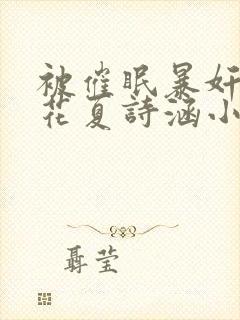 被催眠暴奸
花夏詩涵小
聶莹